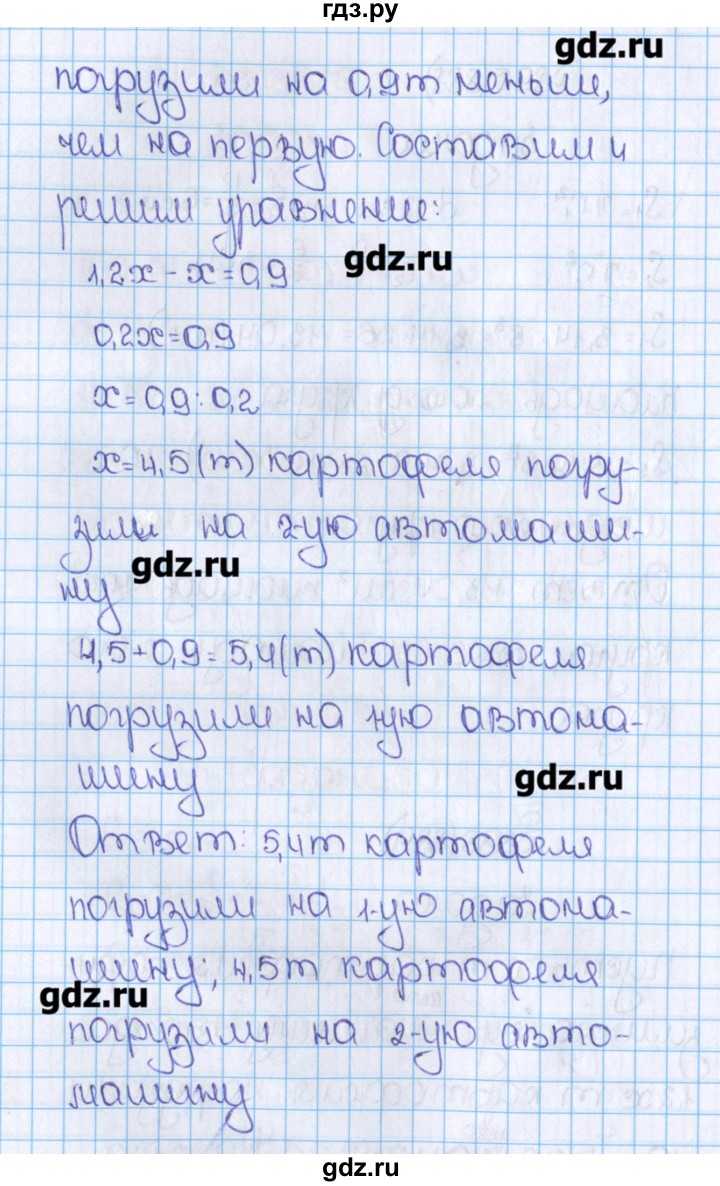 гдз.ру
gdz.ru
погрузили на 0,9т меньши,
чем на первую. Составим и
решим уравнение:
gdz.ru
1,2x - x = 0,9
0,2x = 0,9
x = 0,9 : 0,2
x = 4,5 (т) картофеля погру-
зили на 2-ую автомаши-
gdz.ru
ну
4,5 + 0,9 = 5,4 (т) картофеля
погрузили на 1-ую автома-
шину
gdz.ru
Ответ: 5,4т картофеля
погрузили на 1-ую автома-
шину; 4,5т картофеля
gdz.ru
погрузили на 2-ую авто-
машину
gdz.ru